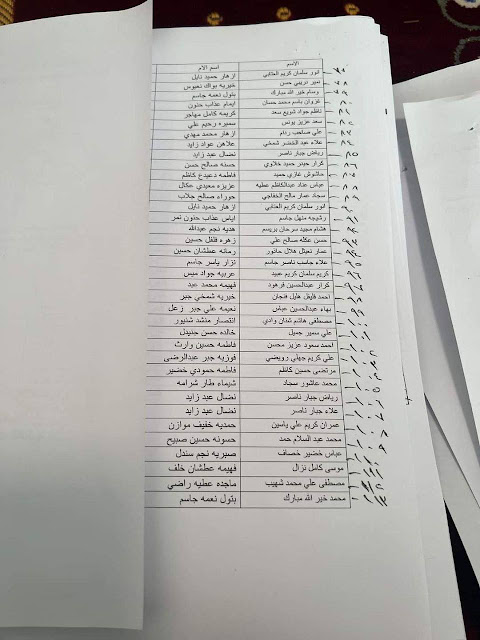 الاسم اسم الام
٧٧ انور سلمان كريم العتابي ازهار حميد نايل
٧٨ نمير دريمي حسن خيريه بواك نعيوس
٧٩ وسام خير الله مبارك بتول نعمه جاسم
٨٠ غزوان باسم محمد حسان ايمام عذاب حنون
٨١ ناظم جواد شويع سعد كريمه كامل مهاجر
٨٢ سعد عزيز يونس سميره رحيم علي
٨٣ علي صاحب ازهار محمد مهدي
٨٤ علاء عبد الخضر شمخي علاهن عواد زايد
٨٥ رياض جبار ناصر نضال عبد زايد
٨٦ كرار حيدر حميد خلاوي حسنه صالح حسن
٨٧ حاشوش غازي حميد فاطمه دعيدع كاظم
٨٨ عباس عناد عبدالكاظم عطيه عزيزه معيدي عكال
٨٩ سجاد عمار مالح الخفاجي حوراء صالح جلاب
٩٠ انور سلمان كريم العتابي ازهار حميد نايل
٩١ رشيجه منهل جاسم اياس عذاب حنون نمر
٩٢ هشام مجيد سرحان بريسم هديه نجم عبدالله
٩٣ حسن عكله صالح علي زهره فلفل حسين
٩٤ عمار نعيثل هلال حانور رمانه عطشان حسين
٩٥ علاء جاسب ناصر جاسم نزار ياسر جاسم
٩٦ كريم سلمان كريم عبيد عربيه جواد ميس
٩٧ كرار عبدالحسين فرهود فهيمه محمد عبد
٩٨ احمد فليفل هليل فنجان خيريه شمخي جبر
٩٩ بهاء عبدالحسين عباس نعيمه علي جبر زعل
١٠٠ مصطفى هاشم ثمان وادي انتصار منشد شنيور
١٠١ علي سمير جميل خالده حسن جنيدل
١٠٢ احمد سعود عزيز محسن فاطمه حسين وارث
١٠٣ علي كريم جهلي رويضي فوزيه جبر عبدالرضى
١٠٤ مرتضى حسين كاظم فاطمه حمودي خضير
١٠٥ محمد عاشور سجاد شيماء طار شرامه
١٠٦ رياض جبار ناصر نضال عبد زايد
١٠٧ علاء جبار ناصر نضال عبد زايد
١٠٨ عمران كريم علي ياسين حمديه خفيف موازن
١٠٩ محمد عبد السلام حمد حسونه حسين صبيح
١١٠ عباس خضير خصاف صبريه نجم سندل
١١١ موسى كامل نزال فهيمه عطشان خلف
١١٢ مصطفى علي محمد شهيب ماجده عطيه راضي
١١٣ محمد خير الله مبارك بتول نعمه جاسم